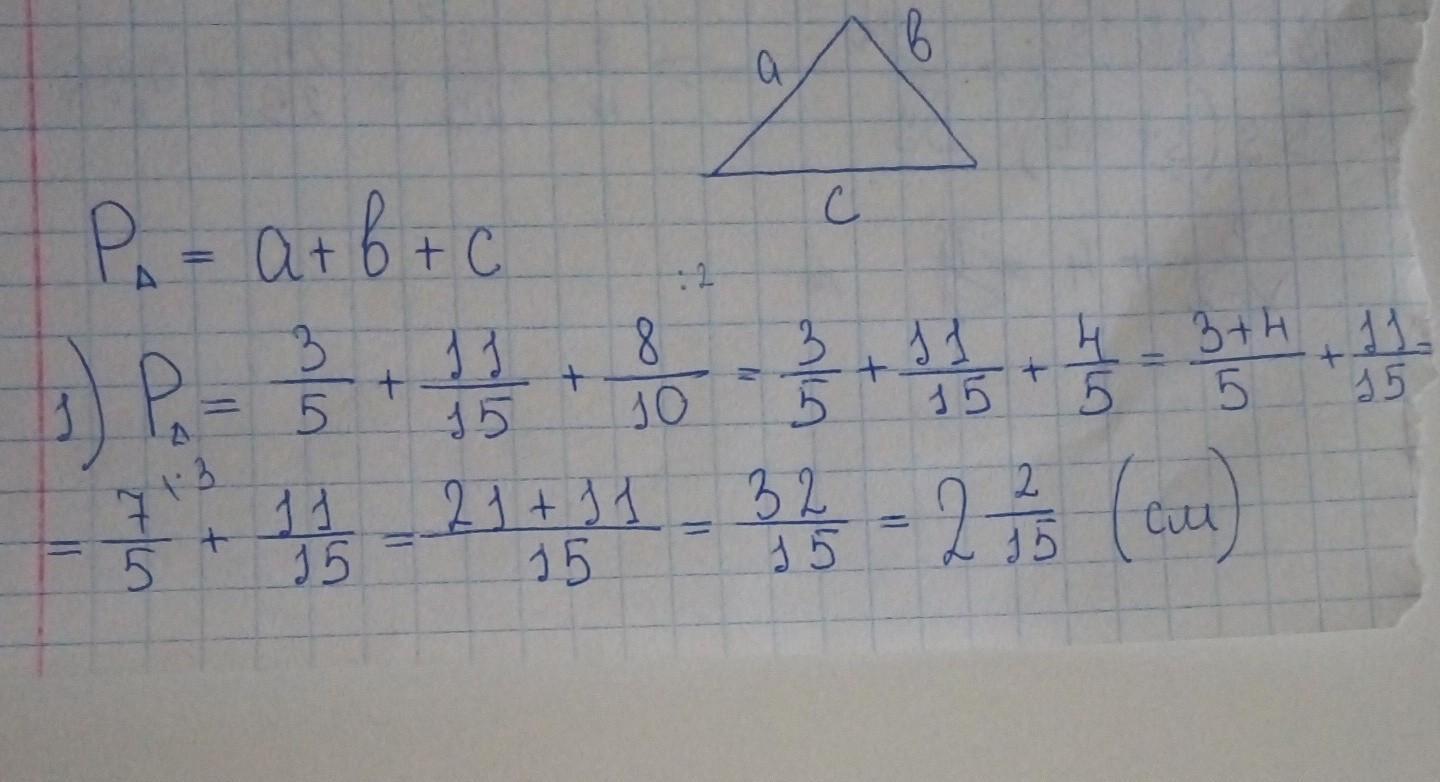 a в
c
P△ = a + в + c
:2
1) P△ = 3/5 + 11/15 + 8/10 = 3/5 + 11/15 + 4/5 = (3+4)/5 + 11/15 =
= 7/5 + 11/15 = (21 + 11)/15 = 32/15 = 2 2/15 (см)